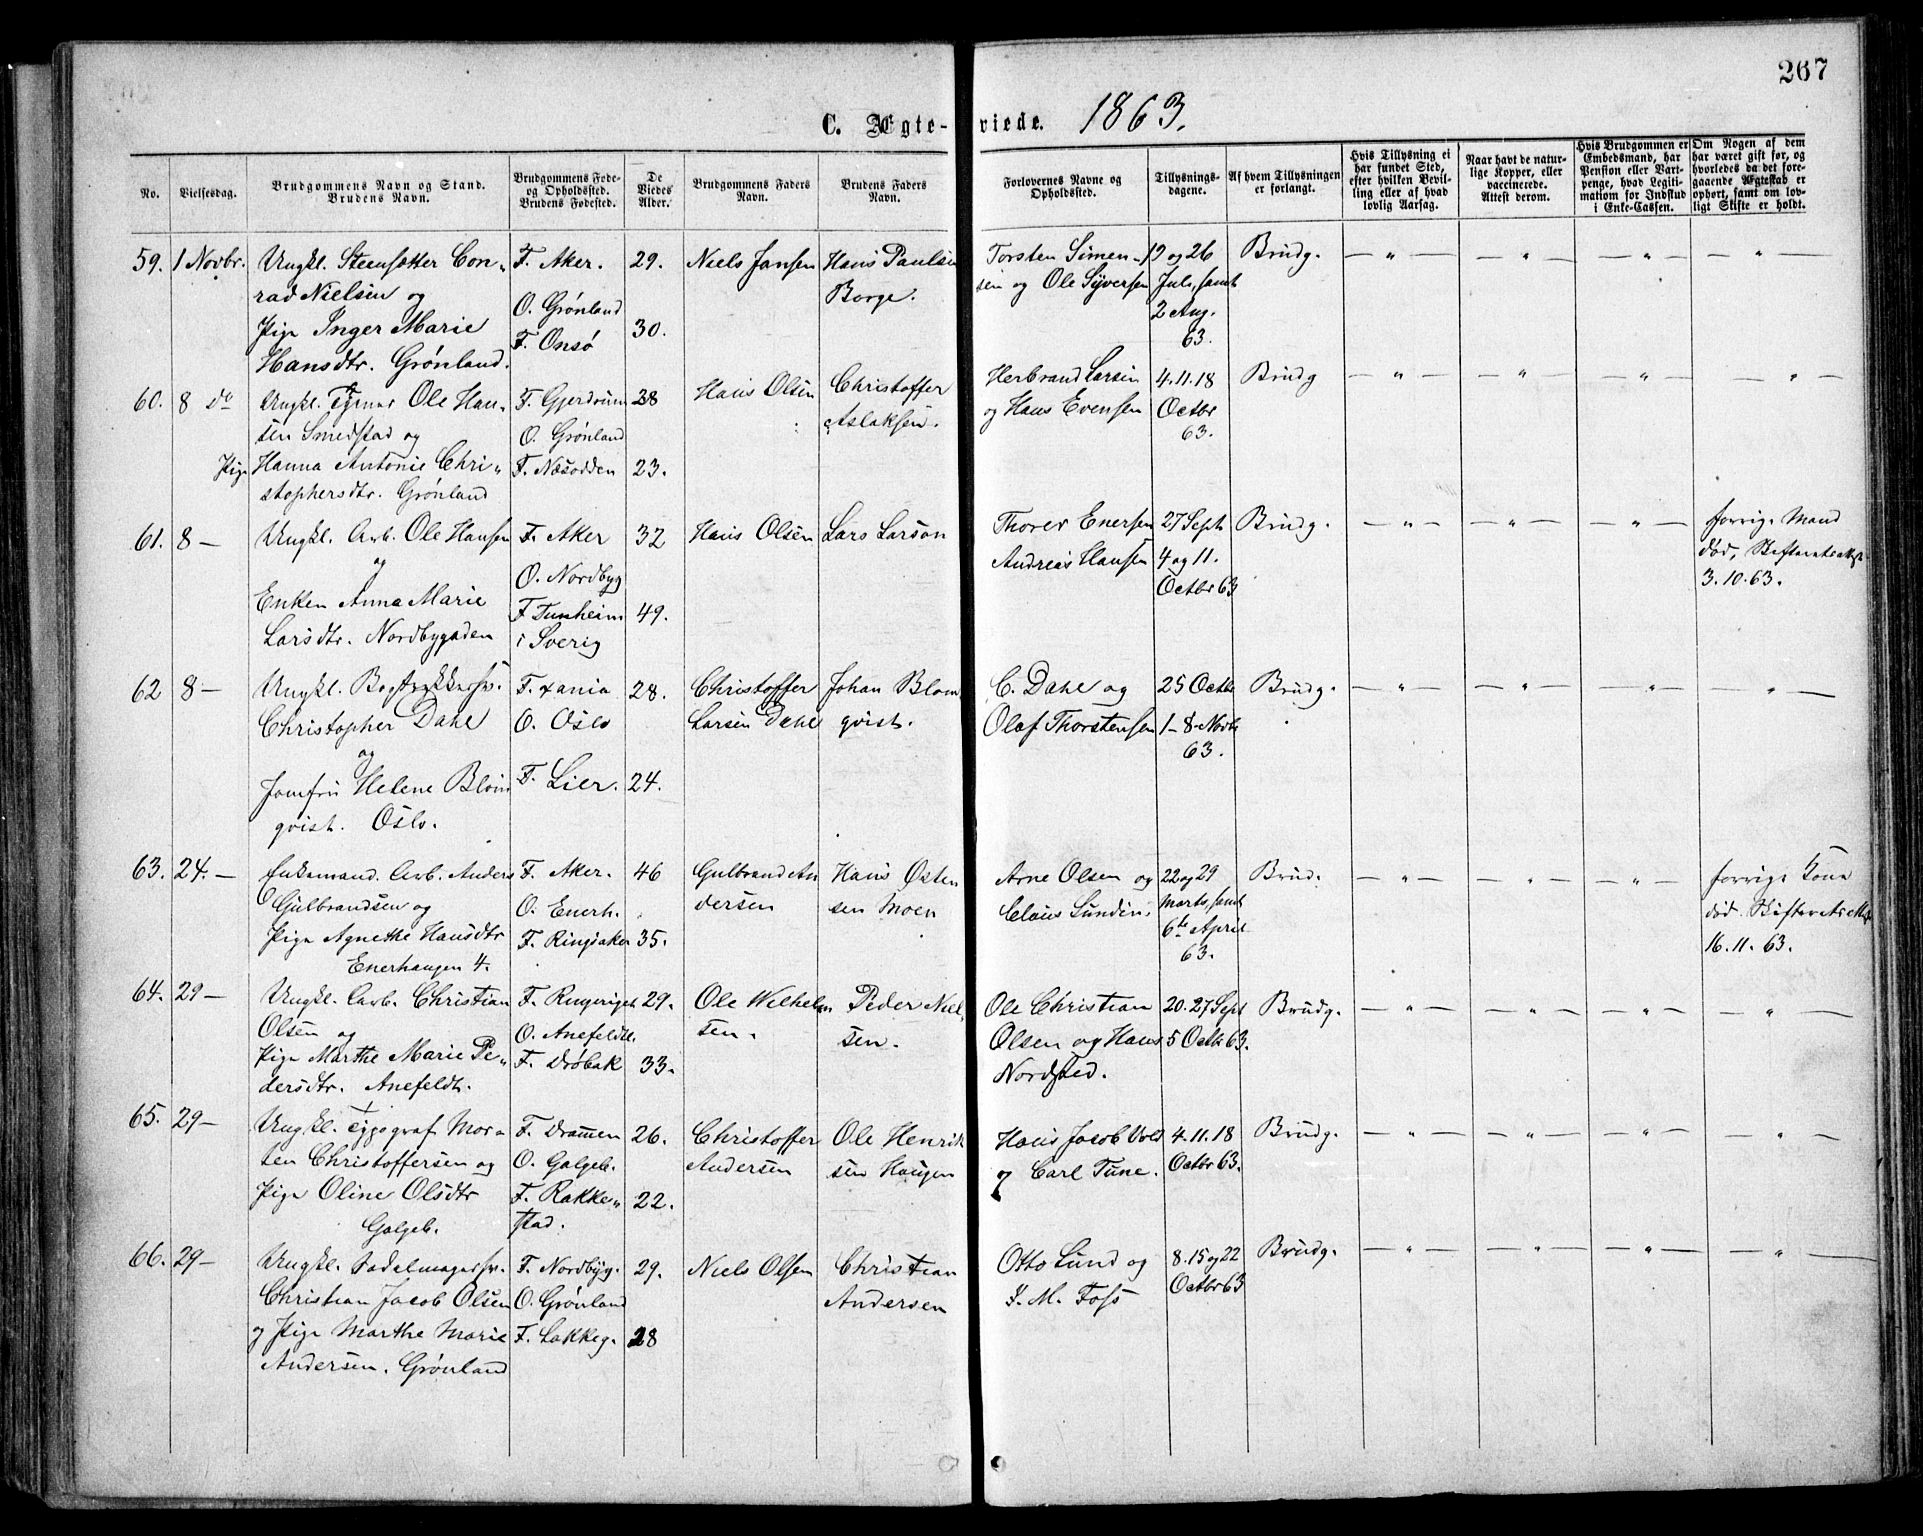 267
C. Ægte-viede. 1863.
No.
Vielsesdag.
Brudgommens Navn og Stand.
Brudens Navn.
Brudgommens Føde-
og Opholdssted.
Brudens Fødested.
De
Viedes
Alder.
Brudgommens Faders
Navn.
Brudens Faders
Navn.
Forlovernes Navne og
Opholdssted.
Tillysnings-
dagene.
Af hvem Tillysningen
er forlangt.
Hvis Tillysning ei
har fundet Sted,
efter hvilken Bevil-
ling eller af hvad
lovlig Aarsag.
Naar havt de natur-
lige Kopper, eller
vaccinerede.
Attest derom.
Hvis Brudgommen er
Embedsmand, har
Pension eller Vart-
penge, hvad Legiti-
mation for Indskud
i Enke-Cassen.
Om Nogen af dem
har været gift før, og
hvorledes da det fore-
gaaende Ægteskab er
ophørt, samt om lov-
ligt Skifte er holdt.
59. 1 Novbr.
Ungkl. Steensætter Con-
rad Nielsen og
Pige Inger Marie
Hansdtr. Grønland.
F. Aker.
O. Grønland
F. Onsø
29.
30.
Niels Jansen
Hans Paulsen
Borge.
Torsten Simen-
sen og Ole Syversen
19 og 26
Juli, samt
2 Aug.
63.
Brudg.
— " —
— " —
— " —
— " —
60. 8 do
Ungkl. Ole Han-
sen Smedstad og
Pige Hanna Antonie Chri-
stophersdtr. Grønland
F. Gjerdrum
O. Grønland
F. Næsodden
28
23.
Hans Olsen
Christoffer
Aslaksen.
Herbrand Larsen
og Hans Evensen
4. 11. 18
Octbr
63.
Brudg
— " —
— " —
— " —
— " —
61. 8 —
Ungkl. Arb. Ole Hansen
og
Enken Anna Marie
Larsdtr. Nordbygaden
F. Aker
O. Nordbyg
F. Tunheim
i Sverig
32
49.
Hans Olsen
Lars Larson
Thorer Enersen
Andreas Hansen
27 Sept
4 og 11.
Octbr 63
Brudg.
— " —
— " —
— " —
forrige Mand
død,
3. 10. 63.
62 8 —
Ungkl. Bogtrykkersv.
Christopher Dahl
og
Jomfru Helene Blom
qvist. Oslo.
F. Xania
O. Oslo
F. Lier.
28.
24.
Christoffer
Larsen Dahl
Johan Blom
qvist.
C. Dahl og
Olaf Thorstensen
25 Octbr
1 – 8 Novbr
63.
Brudg.
— " —
— " —
— " —
— " —
63. 24. —
Enkemand. Arb. Anders
Gulbrandsen og
Pige Agnethe Hansdtr
Enerhaugen 4.
F. Aker.
O. Enerh.
F. Ringsaker
46
35.
Gulbrand An
dersen
Hans Østen
sen Moen
Arne Olsen og
Claus Lundin.
22 og 29
Marts, samt
6te April
63.
Brud.
— " —
— " —
— " —
forrige Kone
død.
16. 11. 63.
64. 29 —
Ungkl. Arb. Christian
Olsen og
Pige Marthe Marie Pe-
dersdtr. Anefeldt.
F. Ringeriget
O. Anefeldt.
F. Drøbak
29.
33.
Ole Wilhelm
sen.
Peder Niel-
sen.
Ole Christian
Olsen og Hans
Nordsted.
20. 27 Sept
5 Octbr 63.
Brudg.
— " —
— " —
— " —
— " —
65. 29 —
Ungkl. Typograf Mor-
ten Christoffersen og
Pige Oline Olsdtr
Galgeb.
F. Dramen
O. Galgeb.
F. Rakke-
stad.
26.
22.
Christoffer
Andersen
Ole Henrik
sen Haugen
Hans Jacob Vold
og Carl Tune.
4. 11. 18
Octbr 63.
Brudg.
— " —
— " —
— " —
— " —
66. 29 —
Ungkl. Sadelmagersv.
Christian Jacob Olsen
og Pige Marthe Marie
Andersen. Grønland
F. Nordbyg.
O. Grønland
F. Lakkeg.
29.
28
Niels Olsen
Christian
Andersen
Otto Lund og
I. M. Foss
8. 15 og 22
Octbr 63
Brudg.
— " —
— " —
— " —
— " —